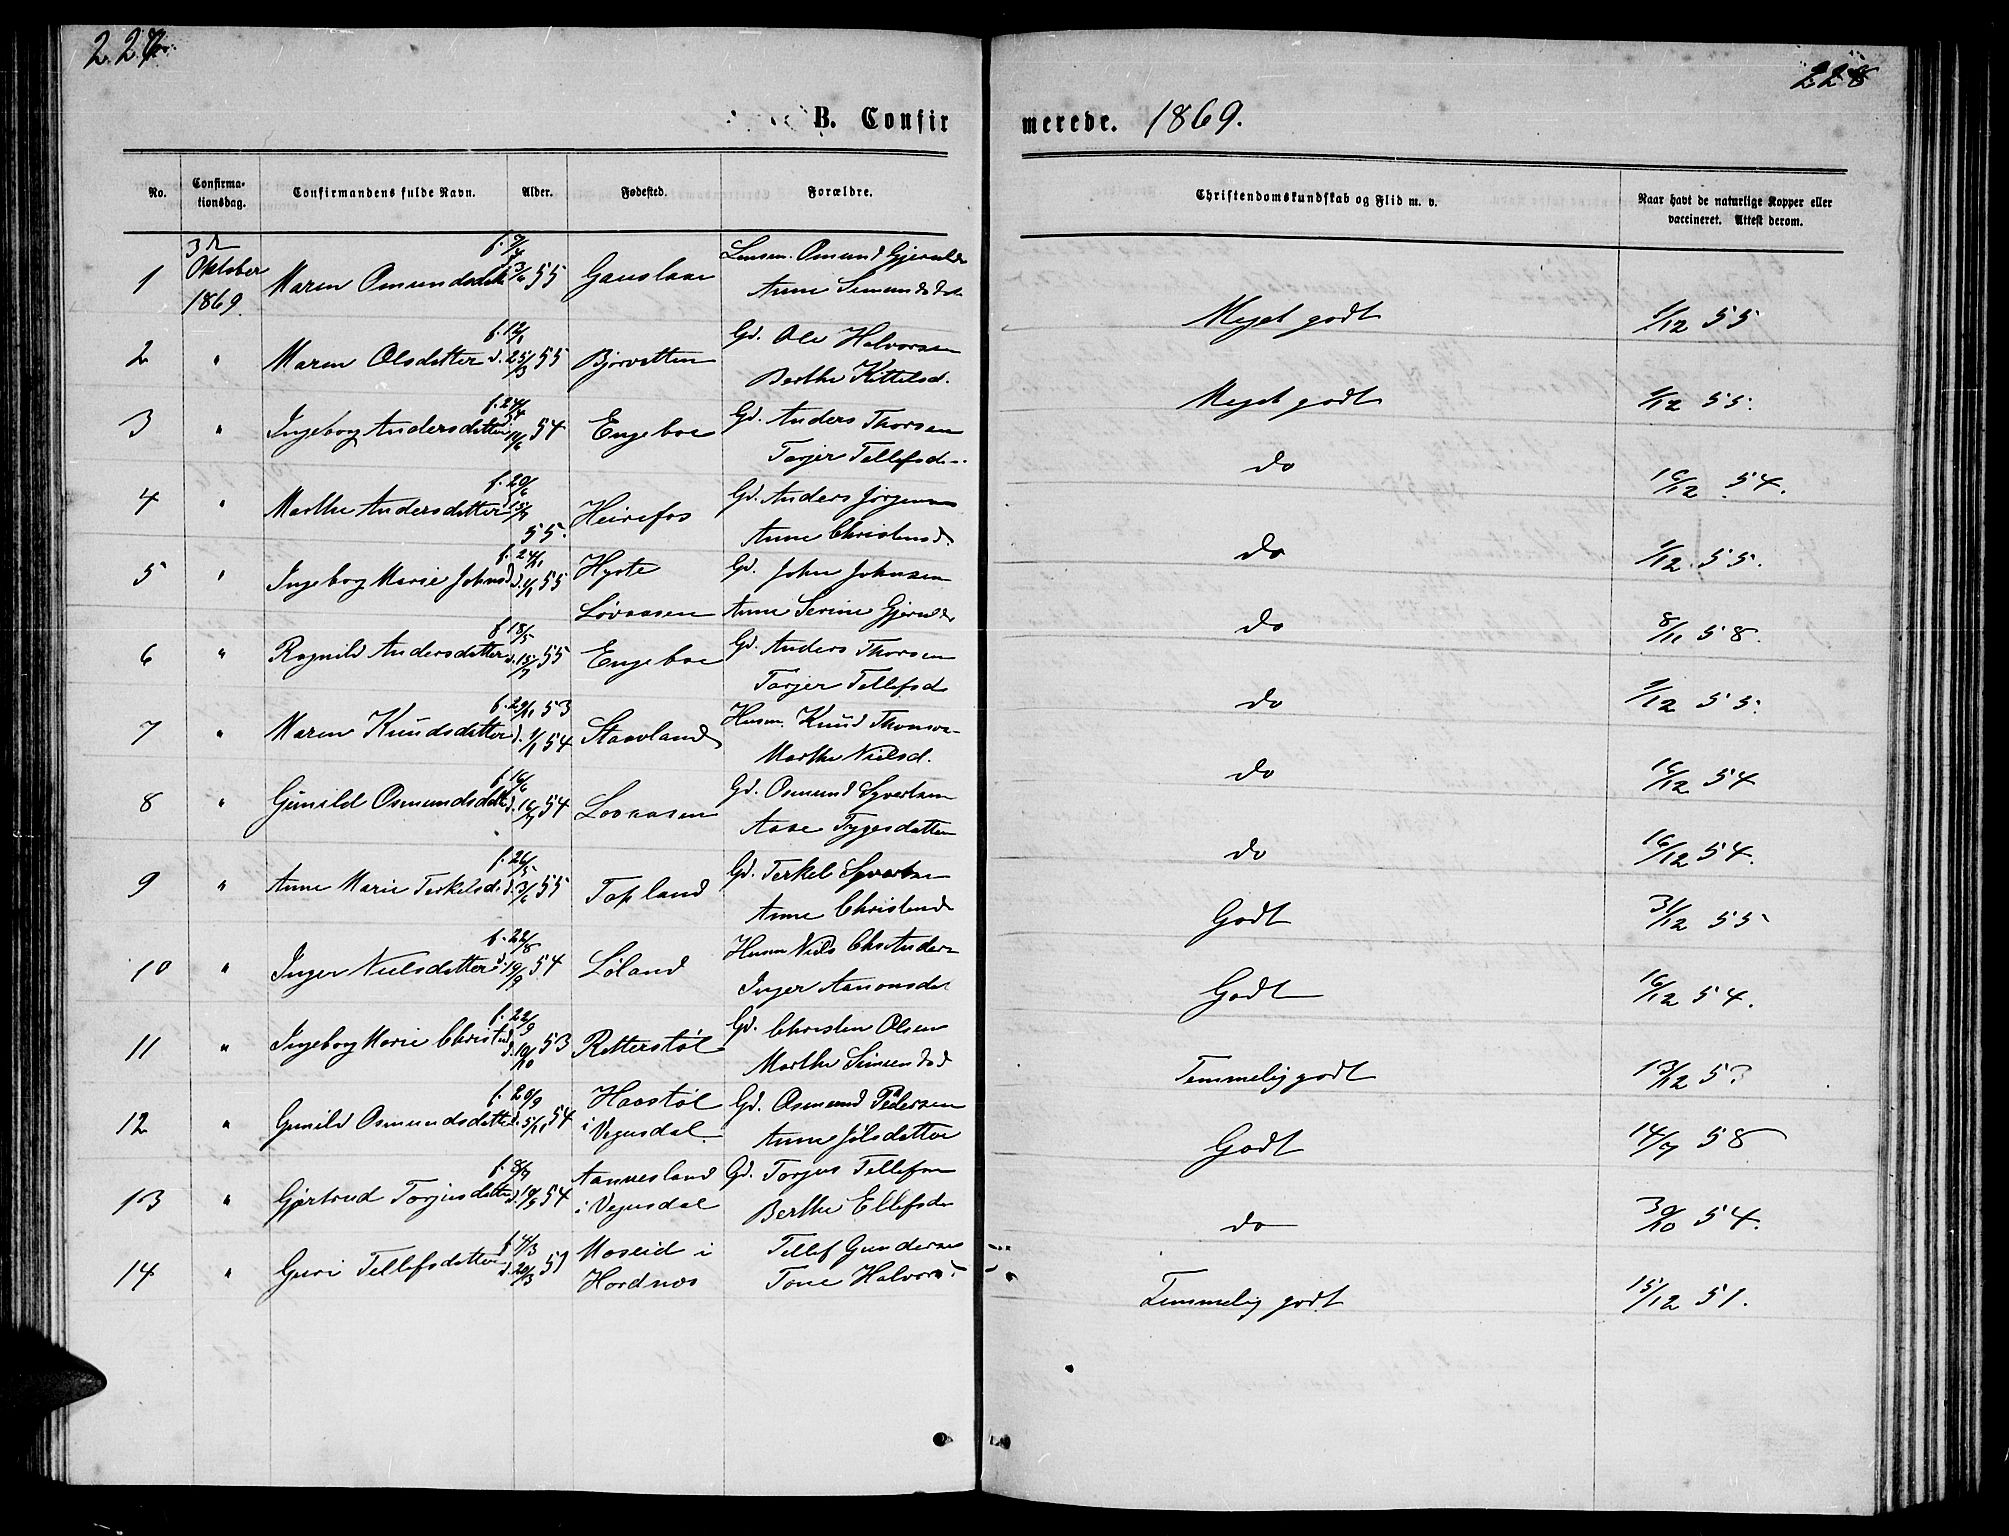 227
228
B. Confir
merede. 1869.
No.
Confirma-
tionsdag.
Confirmandens fulde Navn.
Alder.
Fødested.
Forældre.
Christendomskundskab og Flid m. v.
Naar havt de naturlige Kopper eller
vaccineret. Attest derom.
3d
Oktober
1869.
1 Maren Osmundsdatt 55 Gauslaa
Osmund Gjerulds
Anne Simundsdat
Meget godt 1/12 55
2 " Maren Olsdatter f. 12/1 d. 25/3 55 Bjorvatten
Gd. Ole Halvorsen
Berthe Kittelsd.
Meget godt 1/12 55.
3 " Ingeborg Andersdatter f. 24/4 54 Engeboe
Gd. Anders Thorsen
Torjer Tellefsd.
do 16/12 54.
4 " Marthe Andersdatter f. 20/6 55. Heirefos
Gd. Anders Jørgensen
Anne Christensd.
do 1/12 55.
5 " Ingeborg Marie Johnsd f. 24/1 55 Hyste
Løvaasen
Gd. John Johnsen
Anne Serine Gjerulds
do 8/11 58.
6 " Rognild Andersdatter f. 18/5 d. 15/7 55 Engeboe
Gd. Anders Thorsen
Torjer Tellefsd
do 1/12 55.
7 " Maren Knudsdatter f. 29/11 53 d. 1/1 54 Staavland
Husm. Knud Thomsen
Marthe Nielsd.
do 16/12 54
8 " Gunild Osmundsdatt f. 16/6 d. 16/7 54 Lovaasen
Gd. Osmund Syvertsen
Aase Tygesdatter
do 16/12 54.
9 " Anne Marie Terkelsd. f. 26/5 d. 3/6 55 Topland
Gd. Terkel Syvertsen
Anne Christensd
Godt 31/12 55
10 " Inger Nielsdatter f. 22/8 d. 19/9 54 Loland
Husm Niels Chr Anders
Inger Aanonsdat
Godt 16/12 54.
11 " Ingeborg Marie Christensd f. 22/9 d. 10/10 53 Retterstøl
Gd. Christen Olsen
Marthe Simundsd
Temmelig godt 13/12 53
12 " Gunild Osmundsdatter f. 20/9 d. 5/11 54 Haastøl
i Vegusdal
Gd. Osmund Pedersen
Anne Jølsdatter
Godt 14/7 58
13 " Gjertrud Torjusdatter 54 Aannesland
i Vegusdal
Gd. Torjus Tellefsen
Berthe Ellefsdr
do 30/10 54.
14 " Guri Tellefsdatter f. 4/3 d. 20/3 51 Moseid i
Hordnes
Tellef Gundersen
Tone Halvors
Temmelig godt 15/12 51.